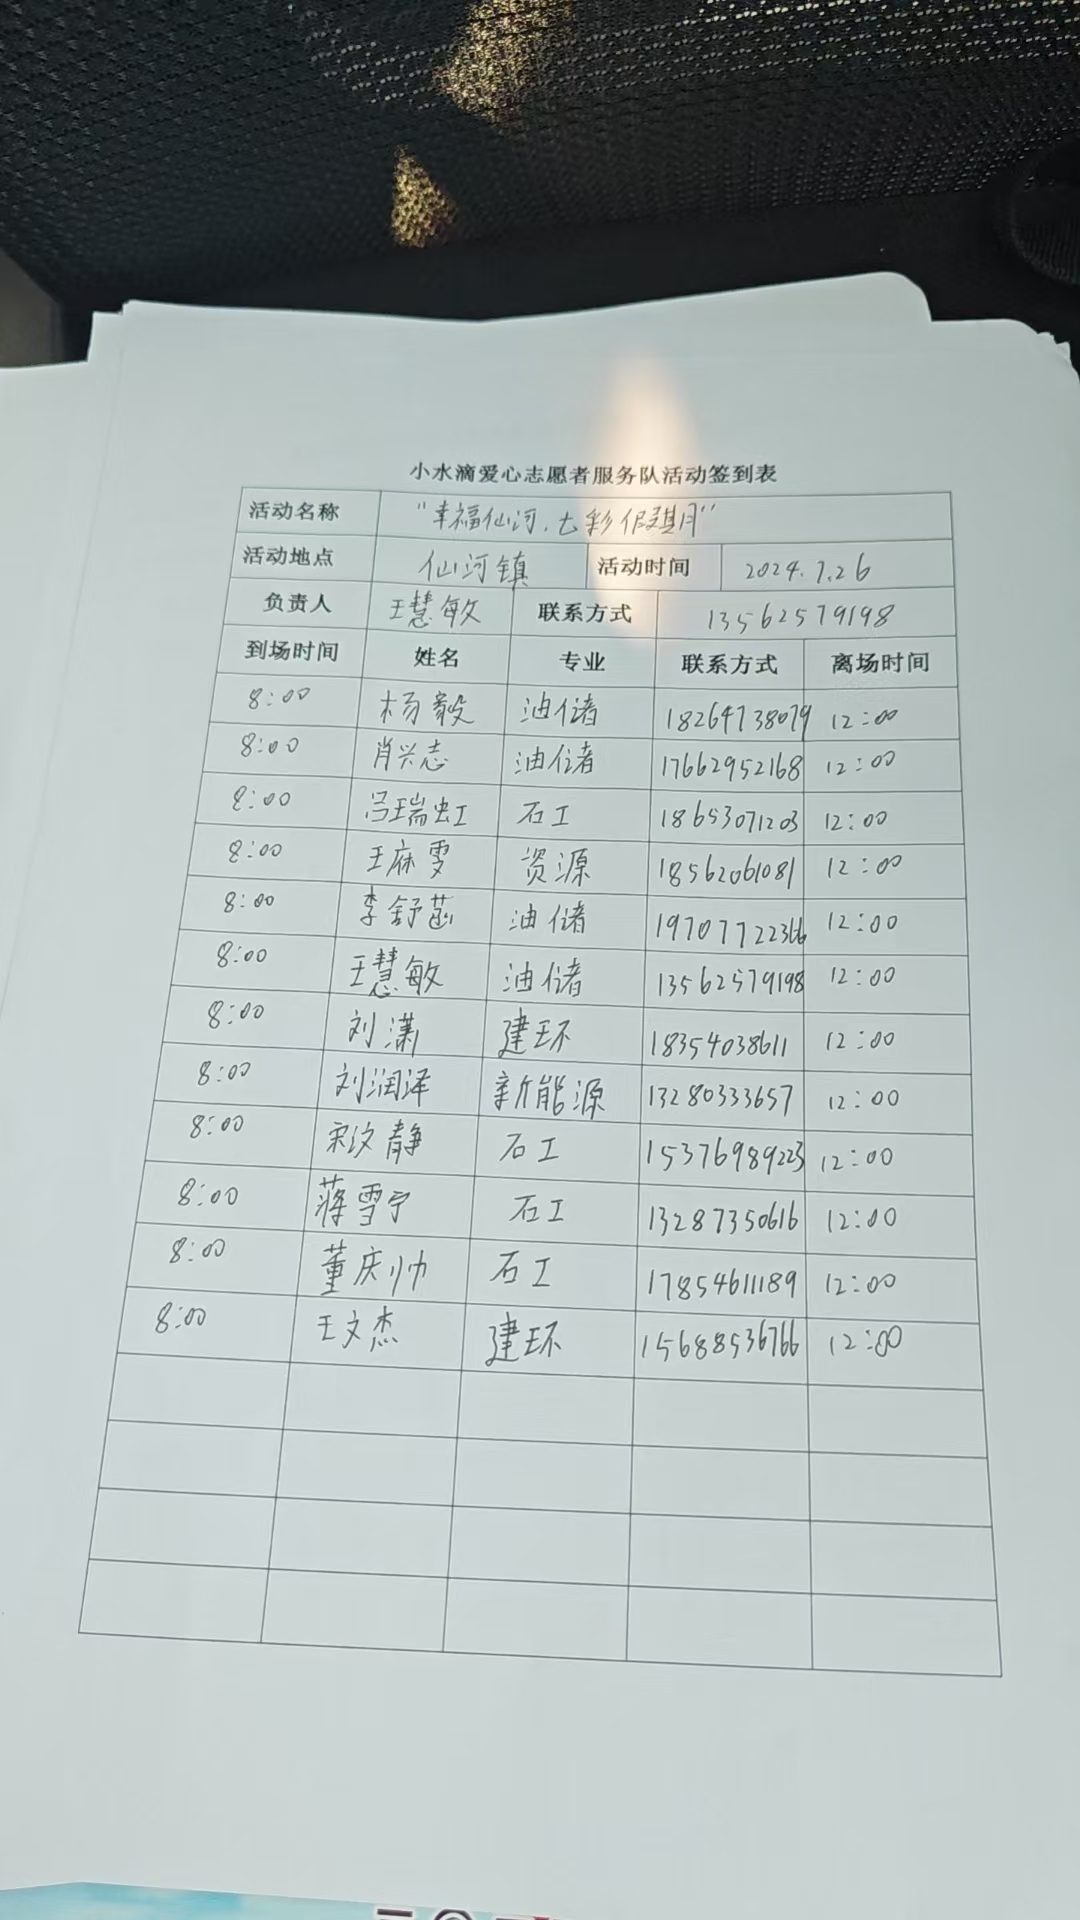 小水滴爱心志愿者服务队活动签到表
活动名称 “幸福仙河，七彩假期”
活动地点 仙河镇 活动时间 2024.7.26
负责人 王慧敏 联系方式 13562579198
到场时间 姓名 专业 联系方式 离场时间
8:00 杨毅 油储 18264738079 12:00
8:00 肖兴志 油储 17662952168 12:00
8:00 冯瑞虹 石工 18653071203 12:00
8:00 王麻雯 资源 18562061081 12:00
8:00 李舒菡 油储 19707722366 12:00
8:00 王慧敏 油储 13562579198 12:00
8:00 刘潇 建环 18354038611 12:00
8:00 刘润泽 新能源 13280333657 12:00
8:00 宋汶静 石工 15376989223 12:00
8:00 蒋雪宁 石工 13287350616 12:00
8:00 董庆帅 石工 17854611189 12:00
8:00 王文杰 建环 15688536766 12:00